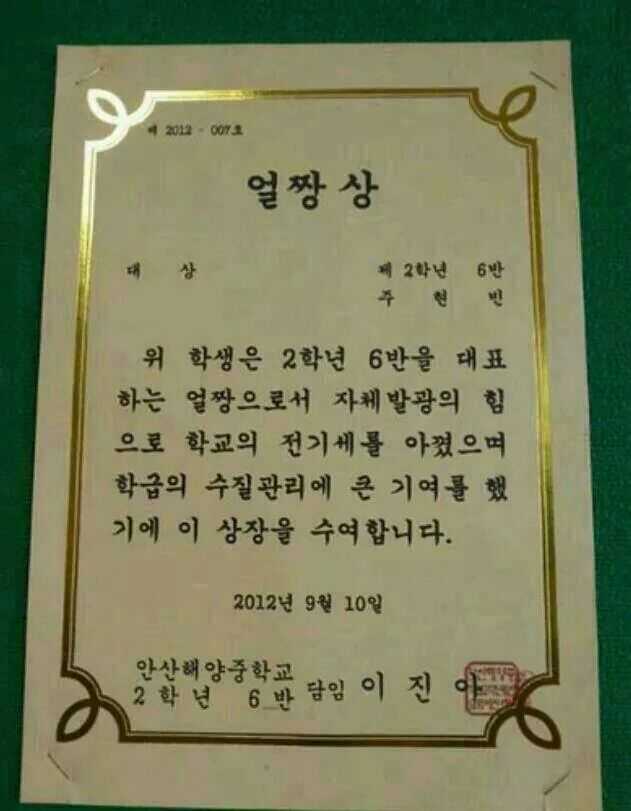 제 2012 - 007호
얼짱상
대 상 제 2학년 6반
주 현 빈
위 학생은 2학년 6반을 대표
하는 얼짱으로서 자체발광의 힘
으로 학교의 전기세를 아꼈으며
학급의 수질관리에 큰 기여를 했
기에 이 상장을 수여합니다.
2012년 9월 10일
안산해양중학교
2 학 년 6 반 담임 이 진 아